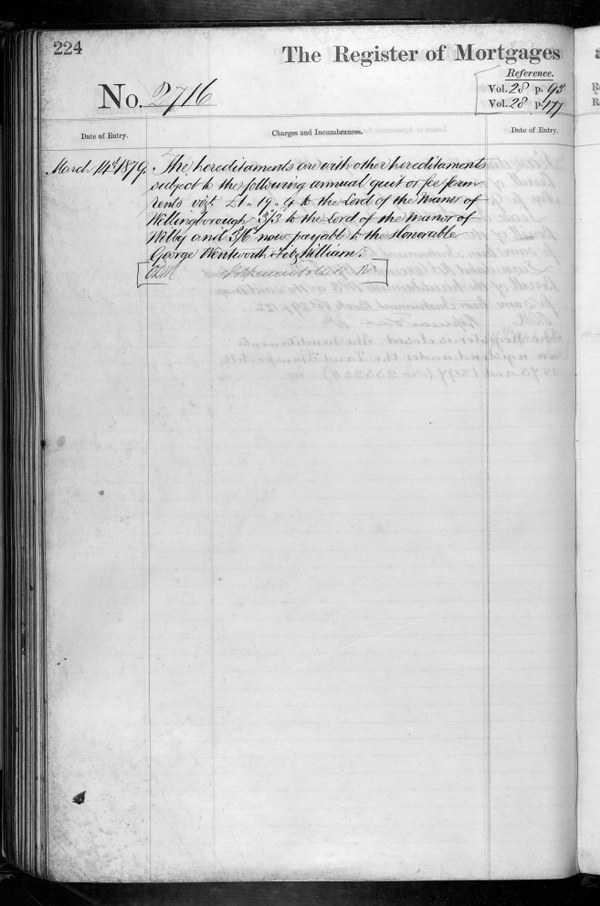 224
The Register of Mortgages
Reference.
No. 2716
Vol. 28 p. 93
Vol. 28 p. 177
Date of Entry.
Charges and Incumbrances.
Date of Entry.
March 14th 1879.
The hereditaments are with other hereditaments
subject to the following annual quit or fee farm
rents vizt. £1. 19. 4 to the Lord of the Manor of
Wellingborough 3/3 to the Lord of the Manor of
Wilby and 3/6 now payable to the Honorable
George Wentworth Fitzwilliam.